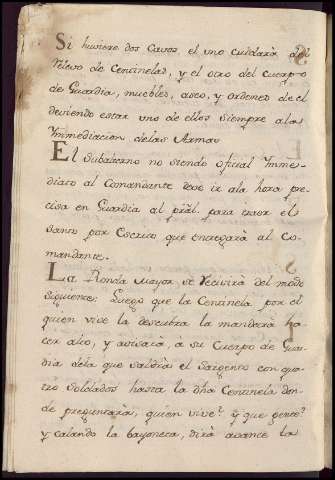 Si huviere dos Cavos, el uno cuidarà del
relevo de Centinelas, y el otro del Cuerpo
de Guardia, muebles, aseo, y ordenes de el
deviendo estar uno de ellos siempre ala
Immediacion delas Armas.
El Subalterno no siendo oficial Imme-
diato al Comandante deve ir ala hora pre-
cisa en Guardia al pràl. para traer el
Santo por Escrito que entregarà al Co-
mandante.
La Ronda Mayor se recivirà del modo
siguiente: Luego que la Centinela por el
quien vive la descubra la manderà ha-
cer alto, y avisarà, à su Cuerpo de Guar-
dia dela que saldrà el Sargento con qua-
tro Soldados hasta la dha Centinela don-
de preguntarà, quien vive? y que gente?
y calando la bayoneta, dirà avance la